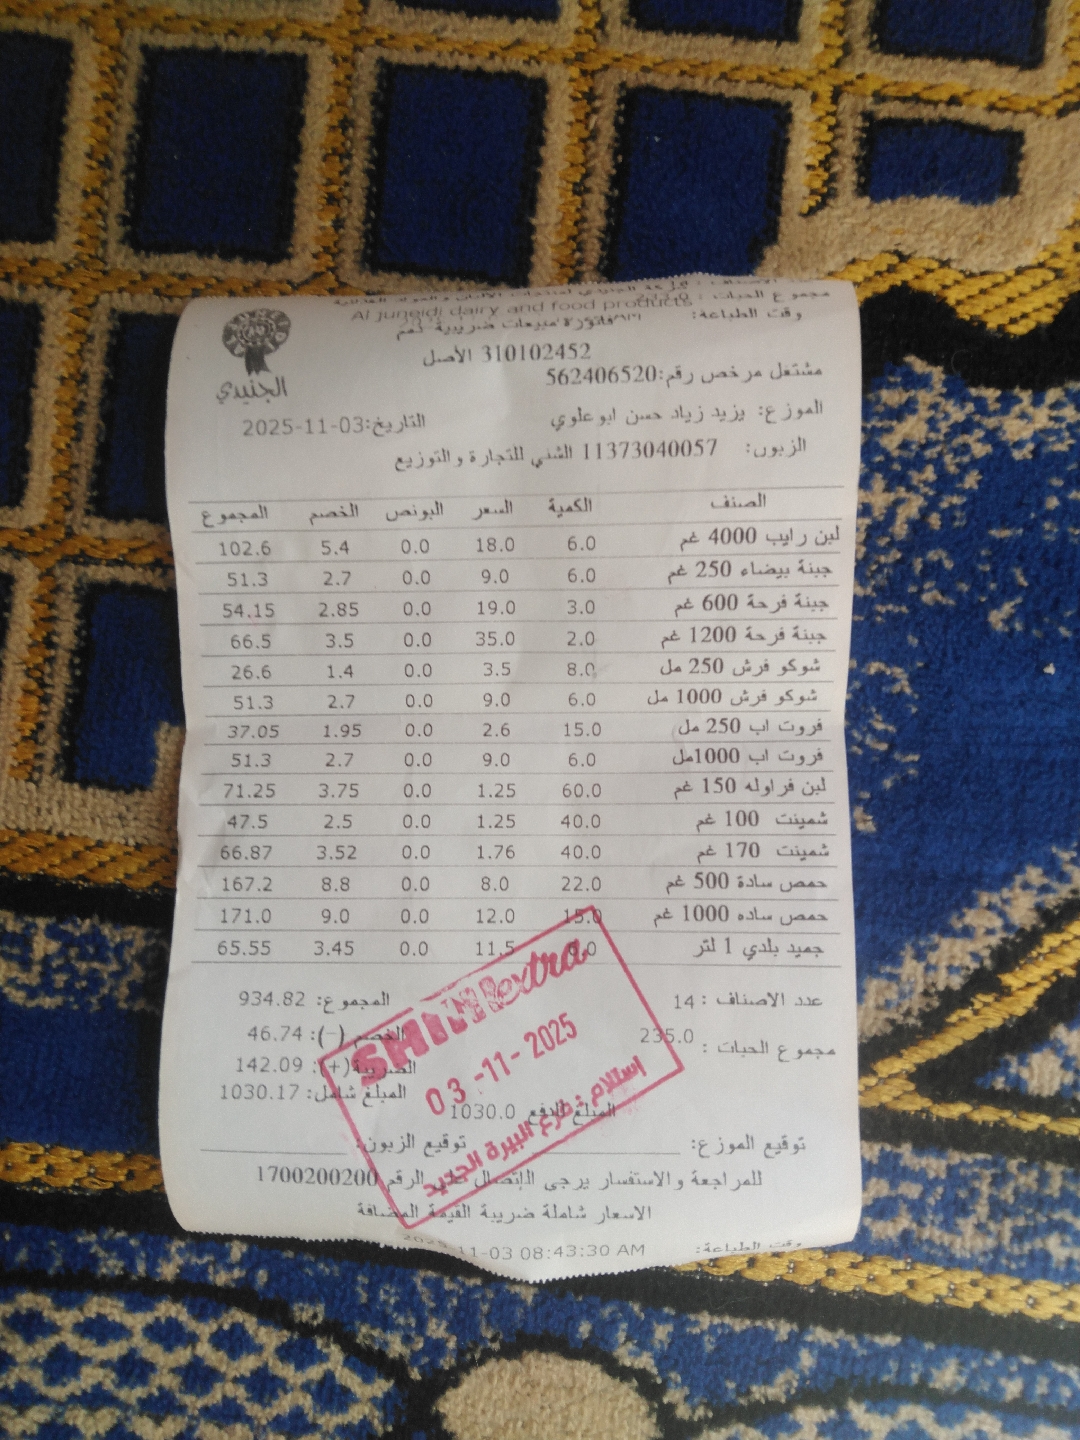 مجموع الحبات : 235.0
Al Juneidi dairy and food products
وقت الطباعة:
فاتورة مبيعات ضريبية رقم
310102452 الأصل
مشتغل مرخص رقم:562406520
الجنيدي
الموزع: يزيد زياد حسن ابو علوي
التاريخ:2025-11-03
الزبون: 11373040057 الشني للتجارة و التوزيع
الصنف الكمية السعر البونص الخصم المجموع
لبن رايب 4000 غم 6.0 18.0 0.0 5.4 102.6
جبنة بيضاء 250 غم 6.0 9.0 0.0 2.7 51.3
جبنة فرحة 600 غم 3.0 19.0 0.0 2.85 54.15
جبنة فرحة 1200 غم 2.0 35.0 0.0 3.5 66.5
شوكو فرش 250 مل 8.0 3.5 0.0 1.4 26.6
شوكو فرش 1000 مل 6.0 9.0 0.0 2.7 51.3
فروت اب 250 مل 15.0 2.6 0.0 1.95 37.05
فروت اب 1000مل 6.0 9.0 0.0 2.7 51.3
لبن فراوله 150 غم 60.0 1.25 0.0 3.75 71.25
شمينت 100 غم 40.0 1.25 0.0 2.5 47.5
شمينت 170 غم 40.0 1.76 0.0 3.52 66.87
حمص سادة 500 غم 22.0 8.0 0.0 8.8 167.2
حمص ساده 1000 غم 15.0 12.0 0.0 9.0 171.0
جميد بلدي 1 لتر 11.5 0.0 3.45 65.55
عدد الاصناف : 14 المجموع: 934.82
الخصم (-): 46.74
مجموع الحبات : 235.0
الضريبة(+): 142.09
المبلغ شامل: 1030.17
المبلغ للدفع 1030.0
SHINI extra
03-11-2025
إستلام : فرع البيرة الجديد
توقيع الموزع: توقيع الزبون:
للمراجعة والاستفسار يرجى الإتصال على الرقم 1700200200
الاسعار شاملة ضريبة القيمة المضافة
وقت الطباعة: 2025-11-03 08:43:30 AM